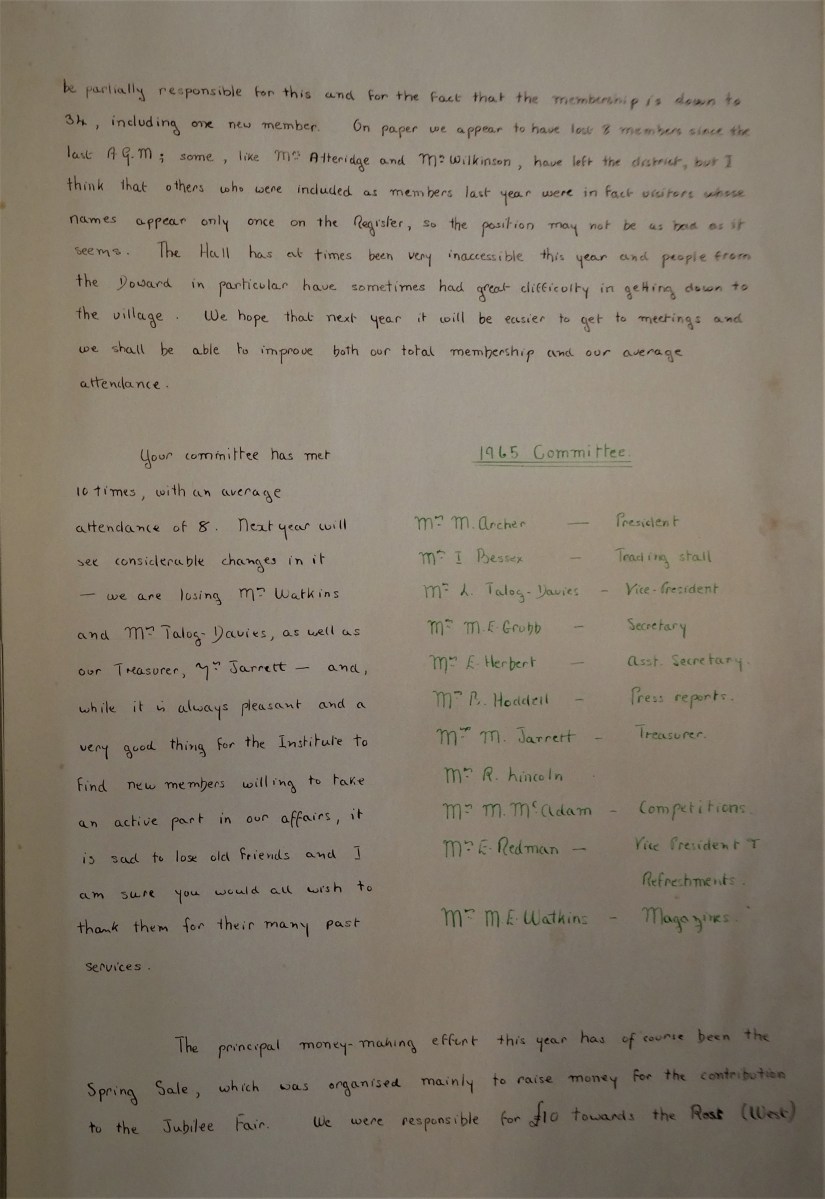 be partially responsible for this and for the fact that the membership is down to
34, including one new member. On paper we appear to have lost 8 members since the
last A.G.M; some, like Mrs Atteridge and Mrs Wilkinson, have left the district, but I
think that others who were included as members last year were in fact visitors whose
names appear only once on the Register, so the position may not be as bad as it
seems. The Hall has at times been very inaccessible this year and people from
the Doward in particular have sometimes had great difficulty in getting down to
the village. We hope that next year it will be easier to get to meetings and
we shall be able to improve both our total membership and our average
attendance.
Your committee has met
10 times, with an average
attendance of 8. Next year will
see considerable changes in it
— we are losing Mrs Watkins
and Mrs Talog-Davies, as well as
our Treasurer, Mrs Jarrett — and,
while it is always pleasant and a
very good thing for the Institute to
find new members willing to take
an active part in our affairs, it
is sad to lose old friends and I
am sure you would all wish to
thank them for their many past
services.
1965 Committee.
Mrs M. Archer — President
Mrs I Bessex — Trading stall
Mrs L. Talog-Davies - Vice-President
Mrs M.E. Grubb — Secretary
Mrs E. Herbert — Asst. Secretary.
Mrs B. Hoddell - Press reports.
Mrs M. Jarrett - Treasurer.
Mrs R. Lincoln
Mrs M. McAdam - Competitions.
Mrs E. Redman — Vice President +
Refreshments.
Mrs M E. Watkins - Magazines.
The principal money-making effort this year has of course been the
Spring Sale, which was organised mainly to raise money for the contribution
to the Jubilee Fair. We were responsible for £10 towards the Ross (West)